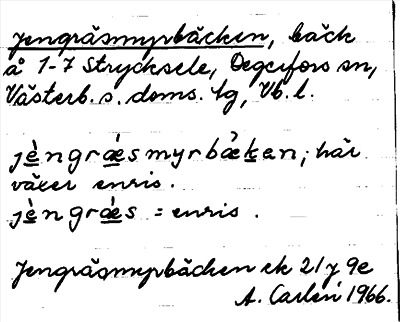 Jengräsmyrbäcken, bäck
å 1-7 Strycksele, Degerfors sn,
Västerb. s. doms. tg, Vb. l.
jèngræ̀smyrbæ̀ken; här
växer enris.
jèngræ̀s = enris.
Jengräsmyrbäcken ek 21 9e
A. Carlén 1966.